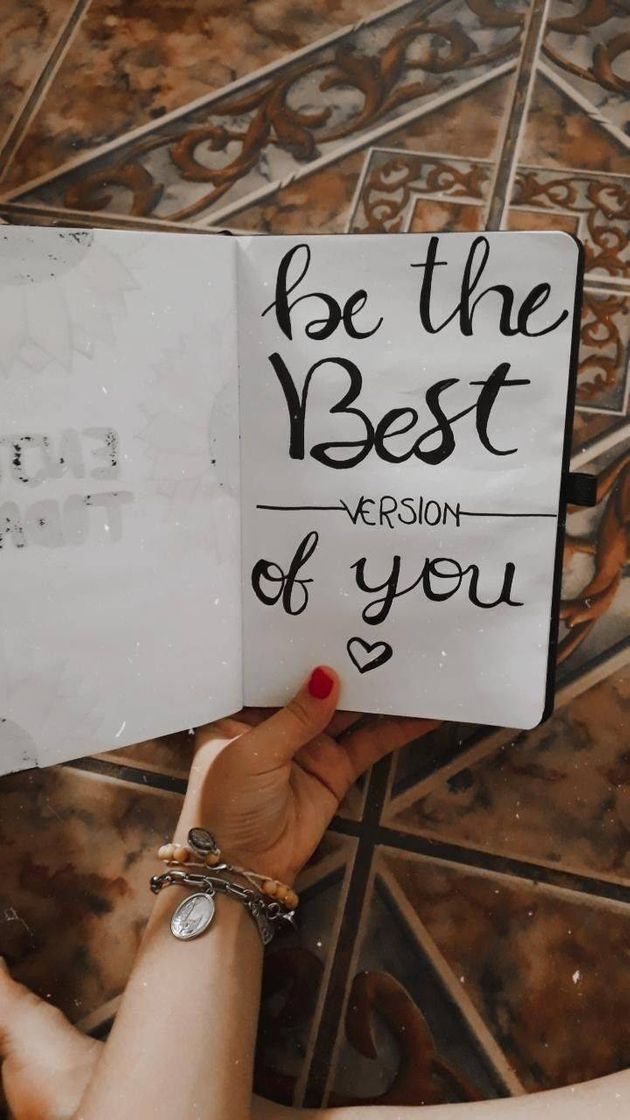 be the
Best
VERSION
of you